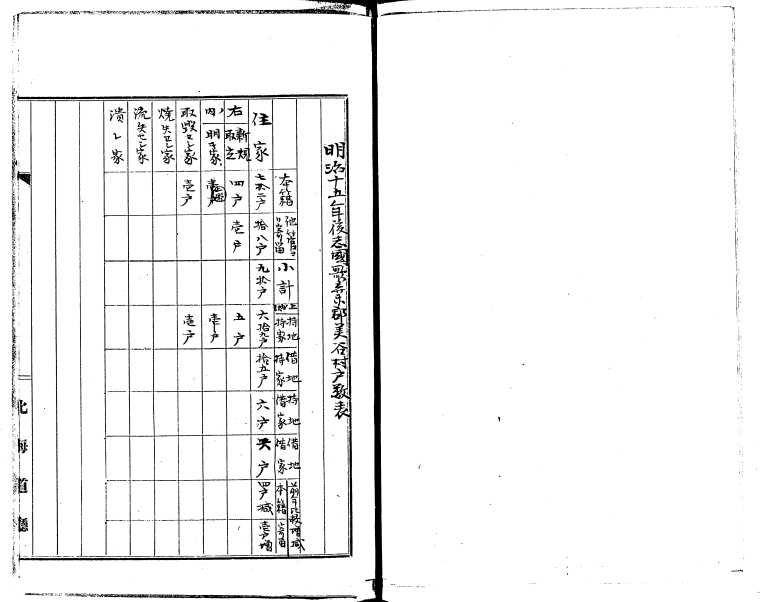 明治十五年後志國歌棄郡美谷村戸数表
本籍
他管ヨリ寄留
小計
持地持家
借地持家
持地借家
借地借家
前年比較増減
本籍
寄留
住家
七拾二戸
拾八戸
九拾戸
六拾九戸
拾五戸
六戸
戸
四戸減
壱戸増
右新規取立
四戸
壱戸
五戸
内明キ家
壱戸
取毀セシ家
壱戸
壱戸
焼失セシ家
流失セシ家
潰レ家
北海道廳